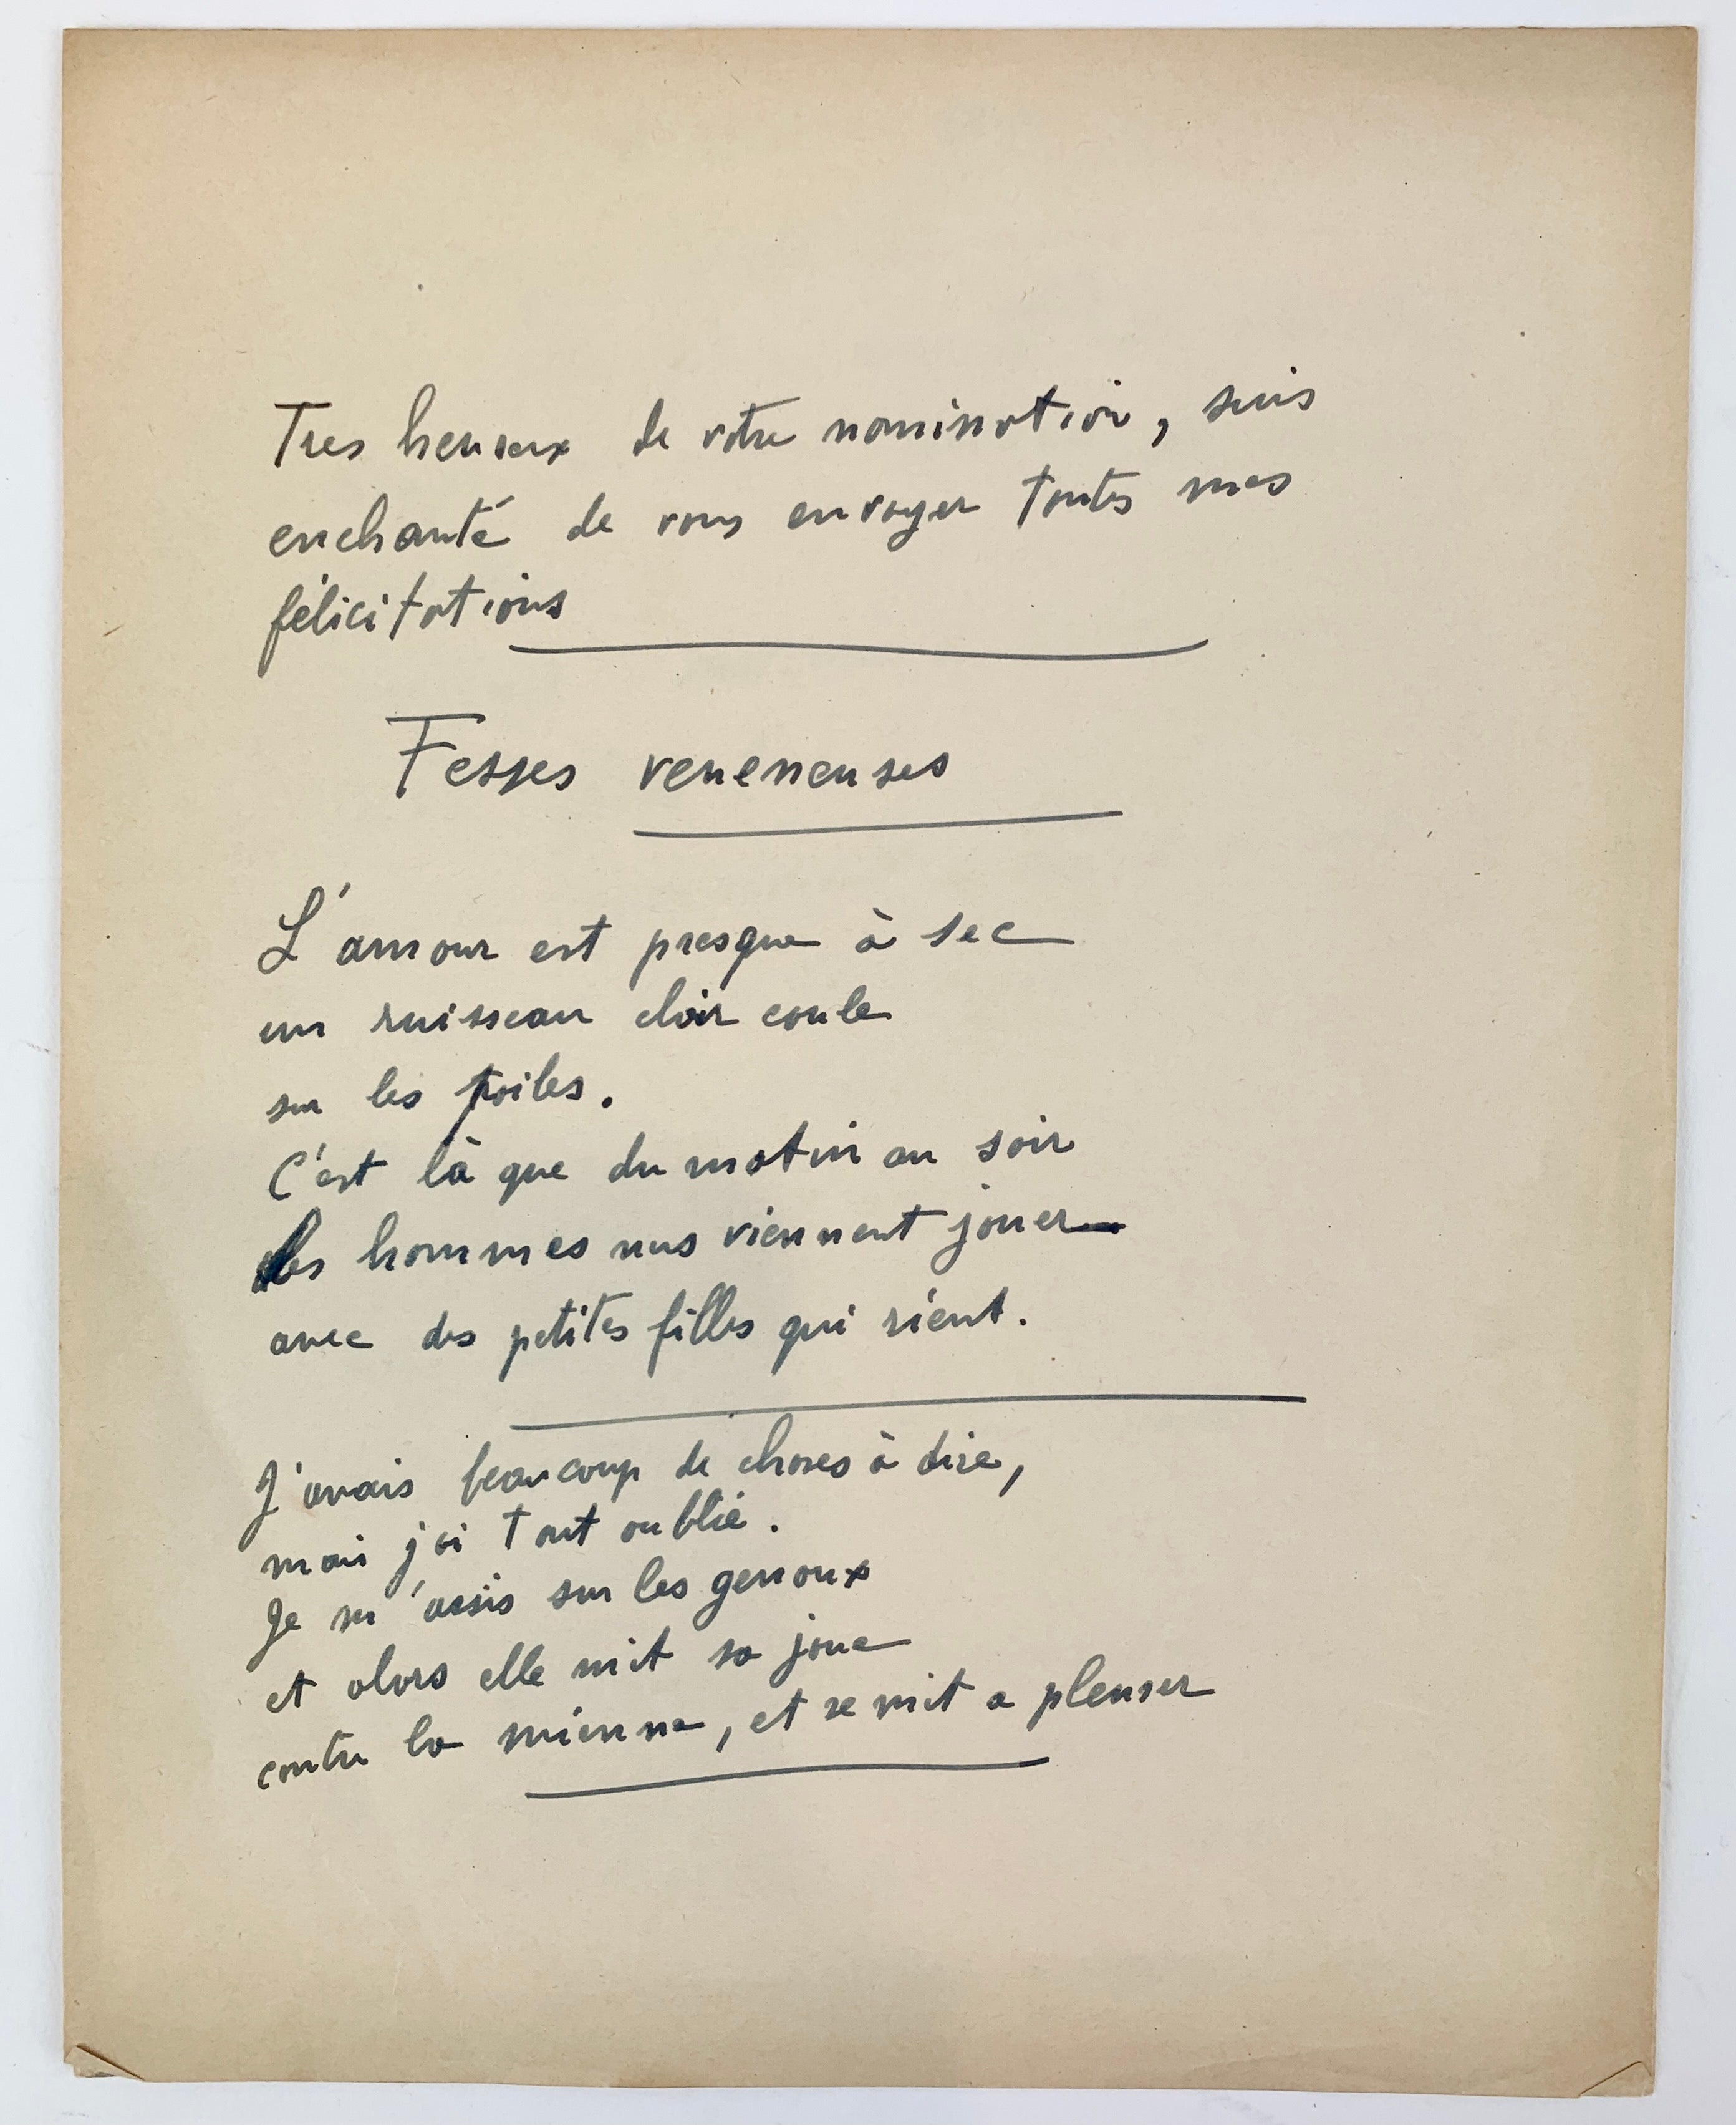 Tres heureux de votre nomination, suis
enchanté de vous envoyer toutes mes
félicitations
Fesses veneneuses
L'amour est presque à sec
un ruisseau clair coule
sur les toiles.
C'est là que du matin au soir
des hommes nus viennent jouer
avec des petites filles qui rient.
J'avais beaucoup de choses à dire,
mais j'ai tout oublié.
Je m'assis sur les genoux
et alors elle mit sa joue
contre la mienne, et se mit a pleurer